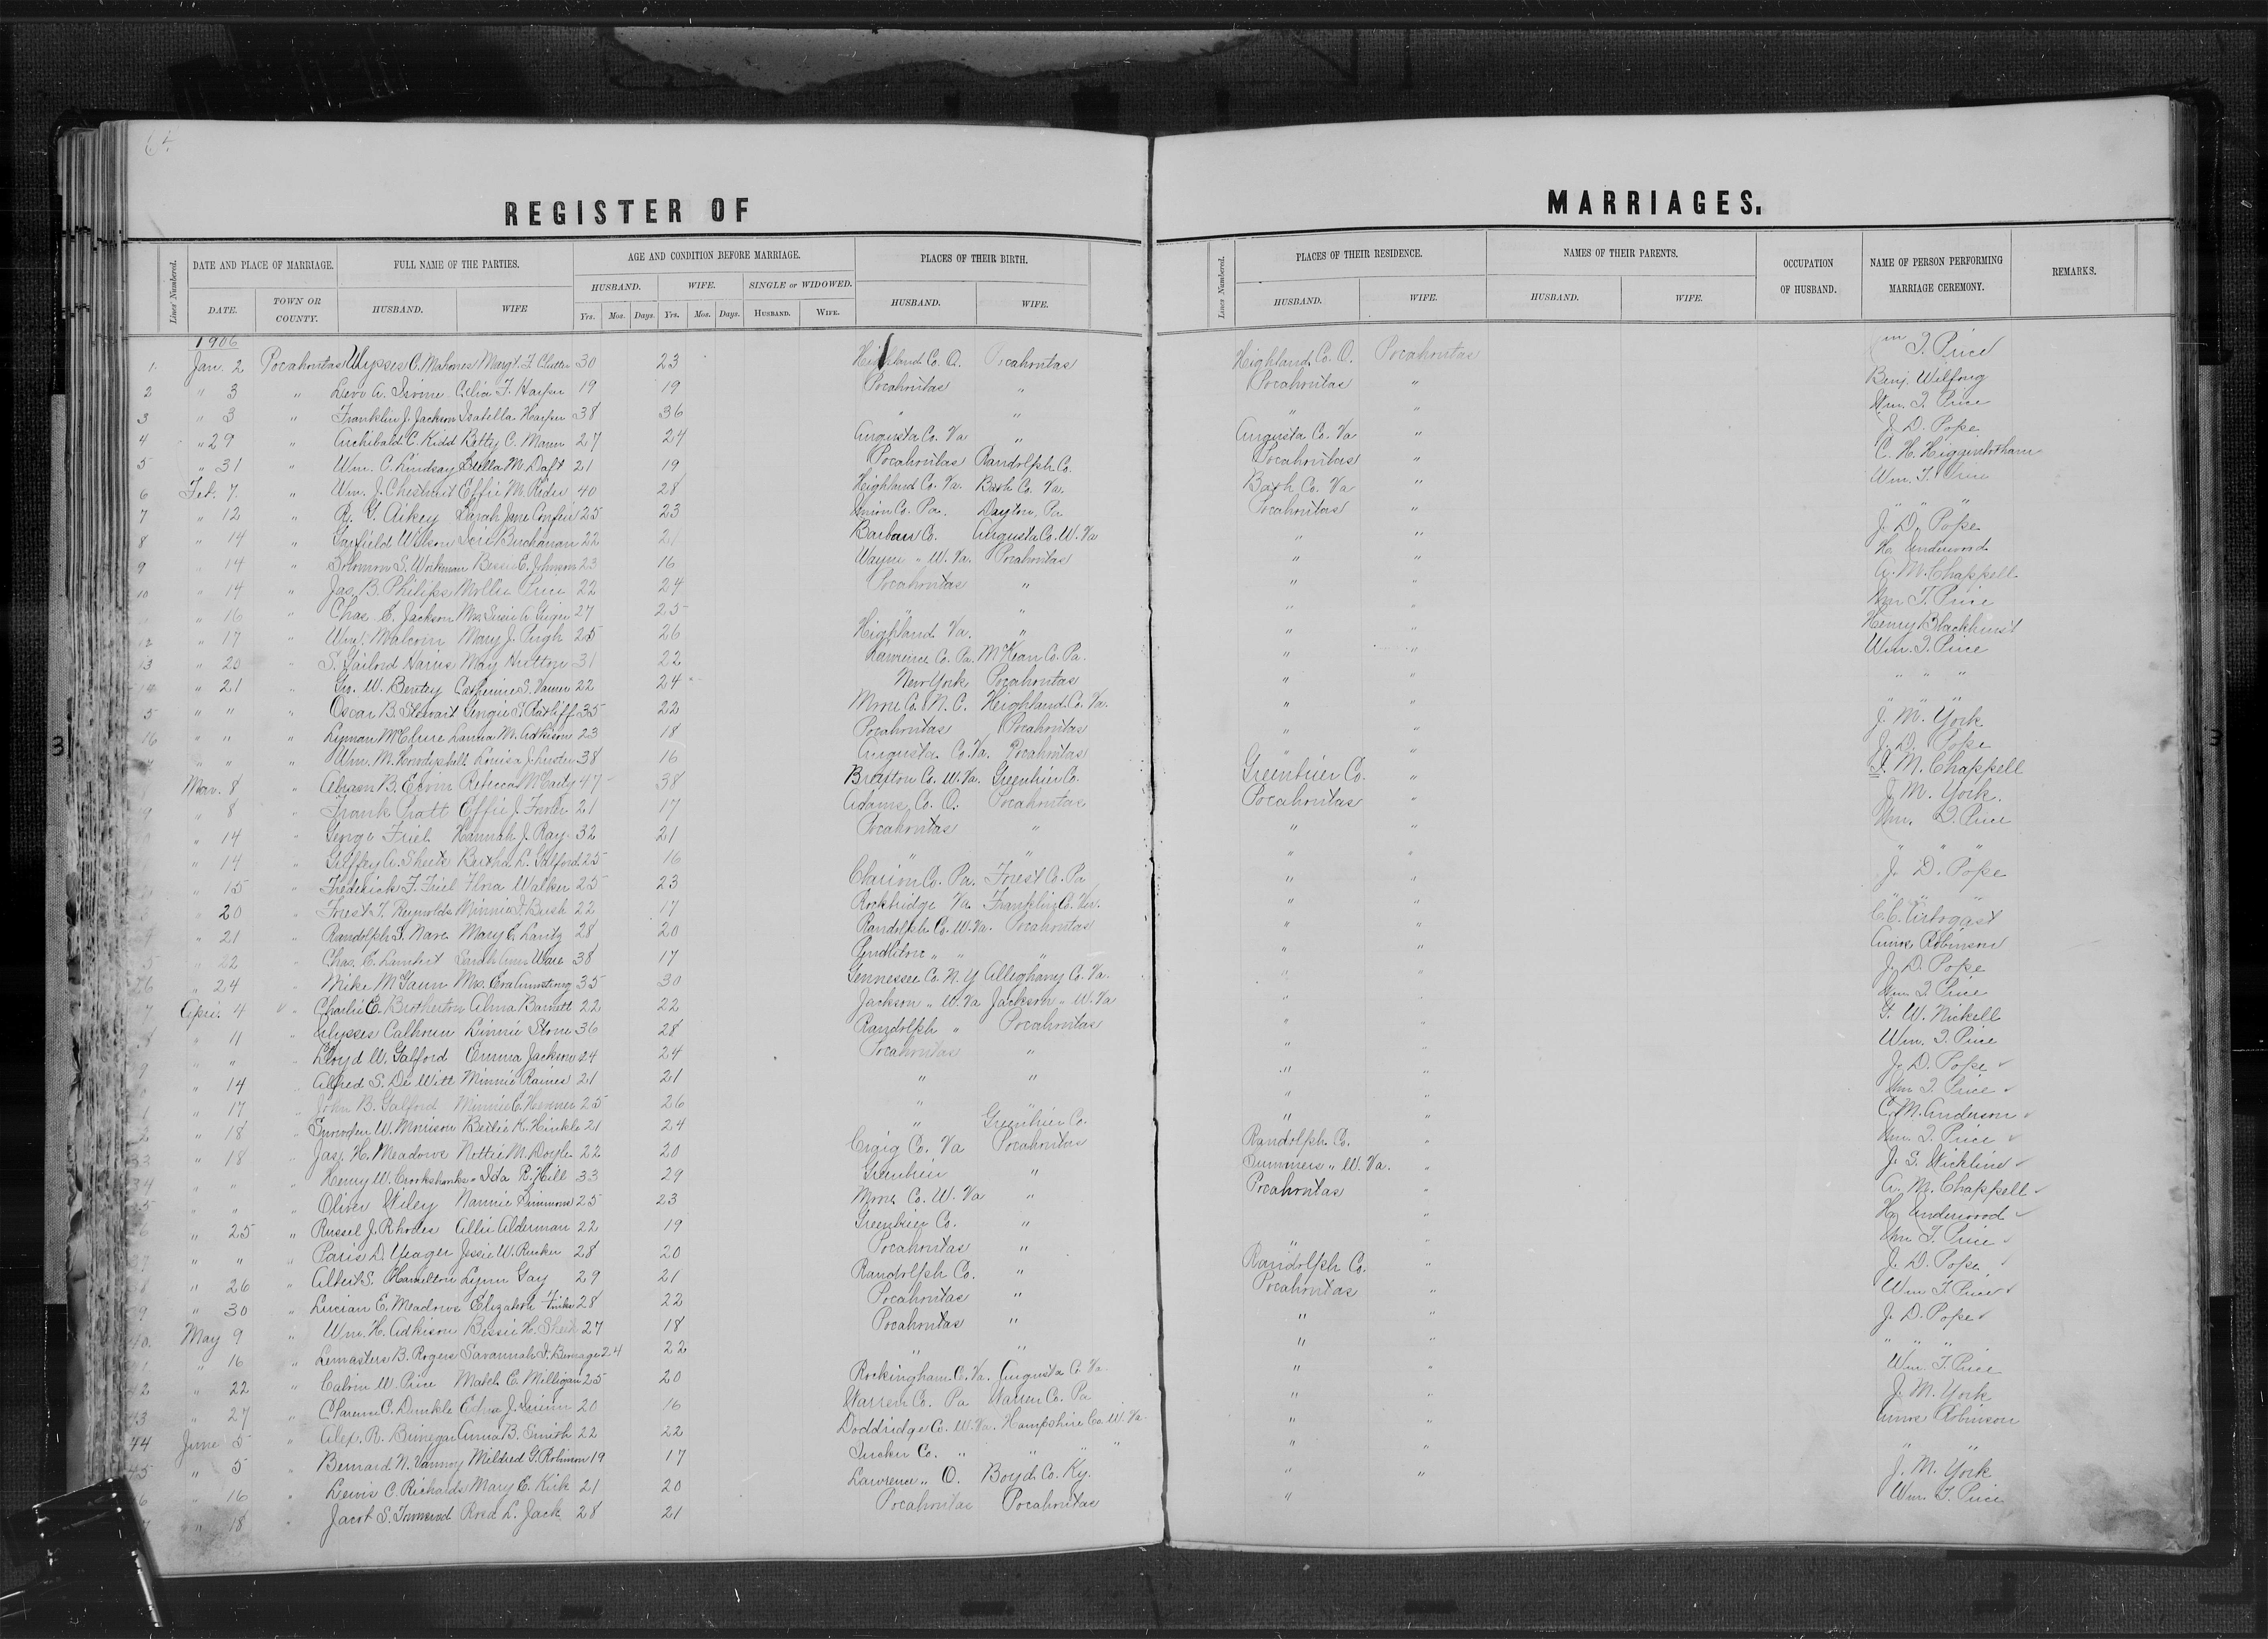 64
REGISTER OF MARRIAGES.
Lines Numbered. DATE AND PLACE OF MARRIAGE. FULL NAME OF THE PARTIES. AGE AND CONDITION BEFORE MARRIAGE. PLACES OF THEIR BIRTH. Lines Numbered. PLACES OF THEIR RESIDENCE. NAMES OF THEIR PARENTS. OCCUPATION OF HUSBAND. NAME OF PERSON PERFORMING MARRIAGE CEREMONY. REMARKS.
DATE. TOWN OR COUNTY. HUSBAND. WIFE HUSBAND. WIFE. SINGLE or WIDOWED. HUSBAND. WIFE. HUSBAND. WIFE. HUSBAND. WIFE.
Yrs. Mos. Days. Yrs. Mos. Days. HUSBAND. WIFE.
1906
1. Jan. 2 Pocahontas Ulysses C. Mahones Margt. F. 30 23 Highland Co. O. Pocahontas Highland Co. O. Pocahontas Wm T. Price
2 " 3 " Levi A. Irvine Celia F. Harper 19 19 Pocahontas " Pocahontas " Benj. Wilfong
3 " 3 " Franklin J. Jackson Isabella Harper 38 36 " " " " Wm. T. Price
4 " 29 " Archibald C. Kidd Betty C. Mann 27 24 Augusta Co. Va " Augusta Co. Va " J. D. Pope
5 " 31 " Wm. C. Lindsay Luella M. Daft 21 19 Pocahontas Randolph Co. Pocahontas " C. H. Higginbotham
6 Feb. 7 " Wm. J. Chestnut Effie M. Rider 40 28 Highland Co. Va. Bath Co. Va. Bath Co. Va " Wm. T. Price
7 " 12 " R. G. Aikey Sarah Jane Confer 25 23 Union Co. Pa. Dayton, Pa Pocahontas " " " "
8 " 14 " Garfield Wilson Buchanan 22 21 Barbour Co. Augusta Co. W. Va " " J. D. Pope
9 " 14 " Solomon S. Workman Bessie E. Johnson 23 16 Wayne " W. Va. Pocahontas " " H. Underwood
10 " 14 " Jas. B. Philips Mollie Price 22 24 Pocahontas " " " A. M. Chappell
" 16 " Chas. E. Jackson Mrs. Susie A. Geiger 27 25 " " " " Wm T. Price
12 " 17 " Wm. Malcom Mary J. Pugh 25 26 Highland Va. " " " Henry Blackhurst
13 " 20 " S. Gailord Harris May Hutton 31 22 Lawrence Co. Pa. McKean Co. Pa. " " Wm. T. Price
14 " 21 " Geo. W. Bentey Catherine S. Varner 22 24 New York Pocahontas " " " " "
5 " " " Oscar B. Stewart Gengie S. Ratliff 35 22 Moore Co. N. C. Highland Co. Va. " " " " "
16 " " " Lyman McClure Laura M. Adkison 23 18 Pocahontas Pocahontas " " J. M. York
" " " Wm. M. Louisa J. 38 16 Augusta Co. Va. Pocahontas " " J. D. Pope
Mar. 8 " Abram B. Ervin Rebecca McCarty 47 38 Braxton Co. W. Va. Greenbrier Co. Greenbrier Co. " A. M. Chappell
9 " 8 " Frank Pratt Effie J. 21 17 Adams Co. O. Pocahontas Pocahontas " J. M. York.
" 14 " George Friel Hannah J. Ray 32 21 Pocahontas " " " Wm. T. Price
" 14 " A. Sheets Bertha L. Galford 25 16 " " " " " " "
" 15 " Frederick F. Friel Flora Walker 25 23 Clarion Co. Pa. Forest Co. Pa " " J. D. Pope
" 20 " Forest T. Reynolds Minnie D. Brish 22 17 Rockbridge Va. Franklin Co. Va. " " " " "
" 21 " Randolph S. Nare Mary E. Lantz 28 20 Randolph Co. W. Va. Pocahontas " " C. C. Arbogast
5 " 22 " Chas. E. Lambert Sarah Ann Ware 38 17 Pendleton " " " " " Amos Robinson
26 " 24 " Mike McGann Mrs. Eva Armstrong 35 30 Gennessee Co. N. Y Alleghany Co. Va. " " J. D. Pope
7 Apri. 4 " " Charlie E. Brotherton Alma Barnett 22 22 Jackson " W. Va Jackson " W. Va " " Wm. T. Price
8 " 11 " Ulysses Calhoun Linnie Stone 36 28 Randolph " Pocahontas " " G. W. Nickell
9 " " " Lloyd W. Galford Emma Jackson 24 24 Pocahontas " " " Wm. T. Price
" 14 " Alfred S. De Witt Minnie Raines 21 21 " " " " J. D. Pope ✓
1 " 17 " John B. Galford Minnie E. Hevener 25 26 " " " " Wm. T. Price ✓
2 " 18 " Snowden W. Morrison Bertie K. Hinkle 21 24 " Greenbrier Co. " " C. M. Anderson ✓
33 " 18 " Jas. H. Meadows Nettie M. Doyle 22 20 Craig Co. Va Pocahontas Randolph Co. " Wm. T. Price ✓
34 " " " Henry W. Crookshanks Ida R. Hill 33 29 Greenbrier " Summers " W. Va. " J. S. Wickline ✓
35 " " " Oliver Wiley Nannie Simmons 25 23 Monroe Co. W. Va " Pocahontas " A. M. Chappell ✓
6 " 25 " Russel J. Rhodes Allie Alderman 22 19 Greenbrier Co. " " Hy Underwood ✓
37 " " " Paris D. Yeager Jessie W. Rucker 28 20 Pocahontas " " " Wm T. Price ✓
38 " 26 " Albert S. Hamilton Lynn Gay 29 21 Randolph Co. " Randolph Co. " J. D. Pope ✓
9 " 30 " Lucian E. Meadows Elizabeth 28 22 Pocahontas " Pocahontas " Wm T. Price ✓
40. May 9 " Wm. H. Adkison Bessie H. Sheets 27 18 Pocahontas " " " J. D. Pope ✓
41 " 16 " Lemasters B. Rogers Savannah I. Beverage 24 22 " " " " " "
42 " 22 " Calvin W. Price Mabel C. Milligan 25 20 Rockingham C. Va. Augusta C. Va " " Wm. T. Price
43 " 27 " Clarence C. Dunkle Edna J. 20 16 Warren Co. Pa Warren Co. Pa " " J. M. York
44 June 5 " Alex. R. Binegar Anna B. Smith 22 22 Doddridge Co. W. Va. Hampshire Co. W. Va. " " Amos Robinson
45 " 5 " Bernard N. Vannoy Mildred G. Robinson 19 17 Tucker Co. " " " " " " " "
6 " 16 " Lewis C. Richards Mary E. Kirk 21 20 Lawrence " O. Boyd Co. Ky. " " J. M. York
" 18 " Jacob S. Reed L. Jack 28 21 Pocahontas Pocahontas " Wm. T. Price
3
3